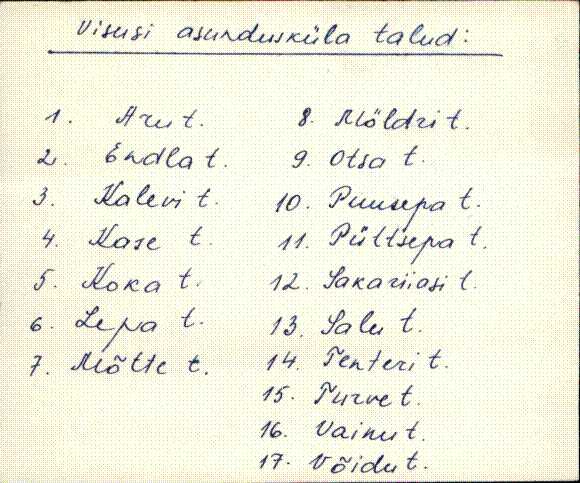 Visusi asundusküla talud:
1. Aru t.
2. Endla t.
3. Kalevi t.
4. Kase t.
5. Koka t.
6. Lepa t.
7. Mõtte t.
8. Möldri t.
9. Otsa t.
10. Puusepa t.
11. Püttsepa t.
12. Sakariiasi t.
13. Salu t.
14. Tenteri t.
15. Turve t.
16. Vainu t.
17. Võidu t.